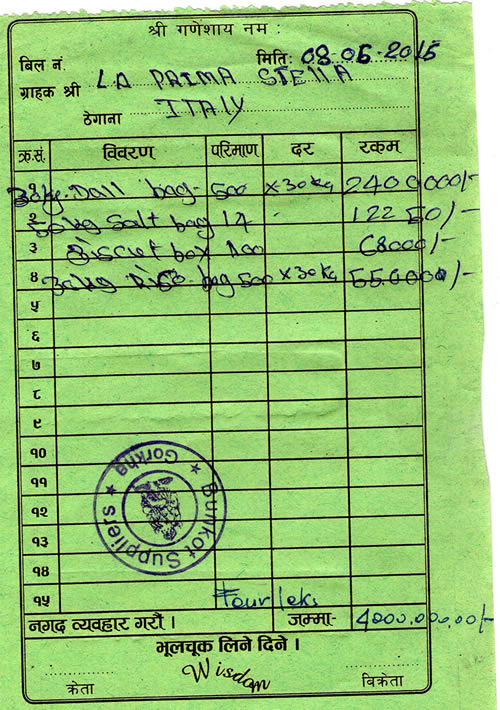 श्री गणेशाय नम :
बिल नं. मिति: 08.06.2015
ग्राहक श्री LA PRIMA STEllA
ठेगाना ITALY
क्र.सं. विवरण परिमाण दर रकम
१ 30kg. Dall bag- 500 x-30kg 2400000/-
२ 50kg Salt bag 17 - 12250/-
३ Biscuet box 100 68000/-
४ 30kg Rice bag 500 x 30kg
५
६
७
८
९
१०
११
१२
१३
१४
१५ Four leks
नगद व्यवहार गरौं । जम्मा- 4000.000.00/-
भूलचूक लिने दिने ।
Wisdom
क्रेता विक्रेता
Bunkot Suppliers ★ Gorkha ★